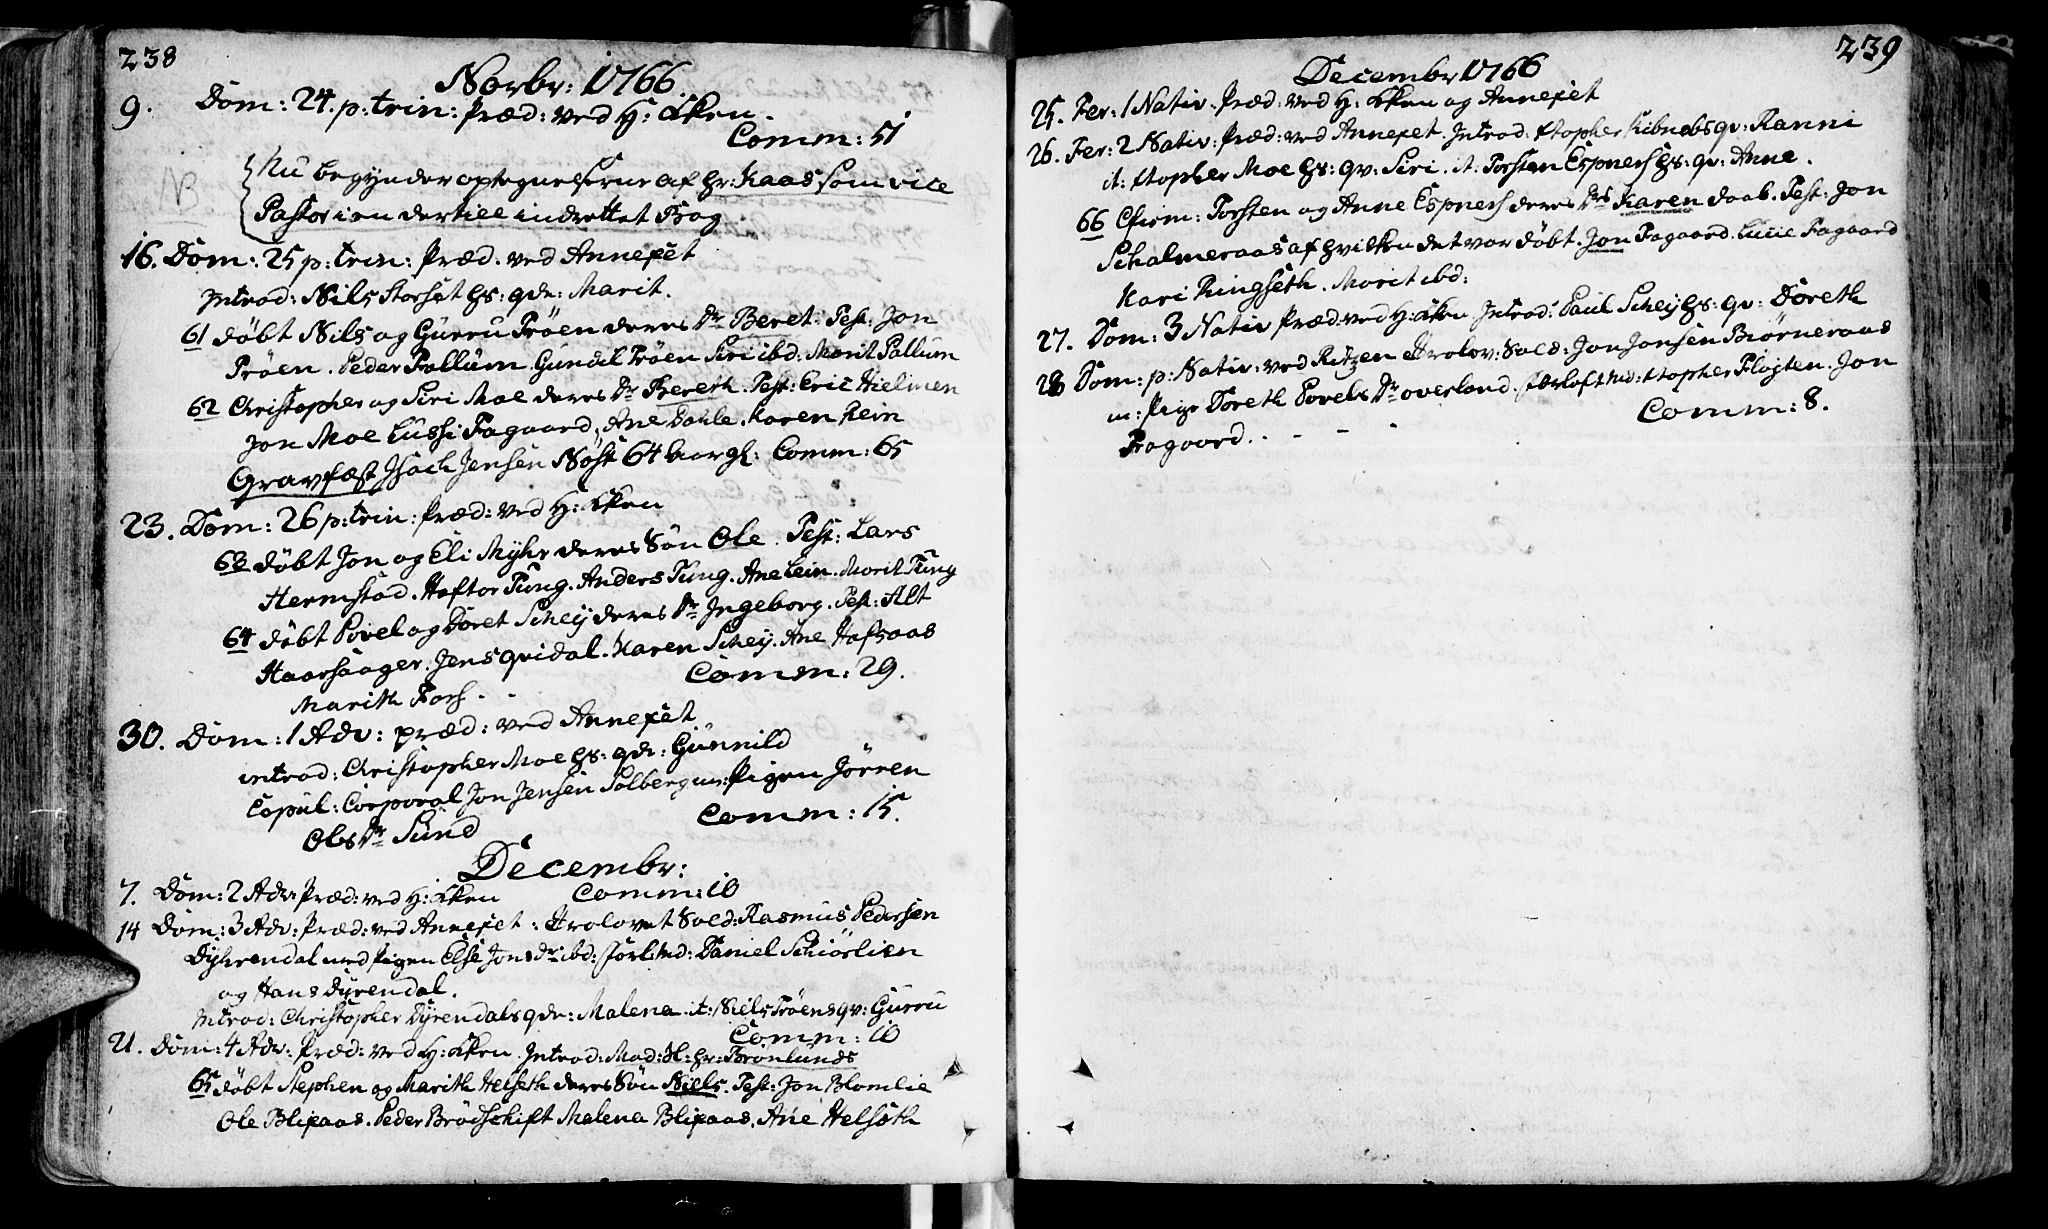 238
Novbr: 1766.
9. Dom: 24. p: trin: Præd: ved H: Kken.
Comm: 51
NB Nu begynder optegnelserne af Hr: Kaas som vice
Pastor i en dertill indrettet Bog
16. Dom: 25 p: trin: Præd. ved Annexet
Introd: Nils Storset hs: qde: Marit.
61 døbt Nils og Gurru Trøen deres Dr Beret. Test: Jon
Trøen. Peder Pallum. Gundil Trøen Siri ibd. Morit Pallum
62 Christopher og Siri Moe deres Dr Bereth. Test: Eric Hielmen
Jon Moe Lussi Fagaard, Ane Dahle. Karen Rein
Gravfæst Isach Jensen Nøst 64 aar gl: Comm: 65
23. Dom: 26 p: trin: Præd: ved H: Kken
63 døbt Jon og Eli Myhr deres Søn Ole. Test: Lars
Hermstad. Haftor Tung. Anders Tung. Ane Lein. Morit Tung
64 døbt Povel og Doret Schey deres Dr Ingeborg. Test: Alt
Haarsaager. Jens Qvidal. Karen Schey. Ane Hafsaas
Comm: 29.
Marith Fors.
30. Dom: 1 Adv: præd: ved Annexet
introd: Christopher Moe hs: qde: Gunnild
Copul: Corporal Jon Jensen Solberg m: Pigen Jørren
Ols Dr Sund
Comm: 15.
Decembr:
7. Dom: 2 Adv: Præd: ved H: Kken Comm: 10
14 Dom: 3 Adv: Præd: ved Annexet: Trolovet Sold: Rasmus Pedersen
Dyhrendal med Pigen Else Jons dr ibd: forl: md: Daniel Schiørlien
og Hans Dyrendal.
Introd: Christopher Dyrendals qde: Malena. it: Niels Trøens qv: Gurru
Comm: 10
21. Dom: 4 Adv: Præd: ved H: Kken. Introd: Mad: Sl: hr: Brønlunds
65 døbt Stephen og Marith Helseth deres Søn Niels. Test: Jon Blomlie
Ole Blixaas. Peder Brødschift Malena Blixaas. Ane Helseth
239
Decembr 1766
25. Fer: 1 Nativ. Præd: ved H: Kken og Annexet
26. Fer: 2 Nativ: Præd: ved Annexet. Introd: Xstopher Kibnebs qv: Ranni
it: Xstopher Moe hs: qv: Siri. it: Torsten Espners hs: qv: Anne.
66 Chrim: Torsten og Anne Espners deres Drs Karen daab. Test: Jon
Schalmeraas af hvilken det var døbt. Jon Fagaard. Lucie Fagaard
Kari Ringseth. Morit ibd:
27. Dom: 3 Nativ Præd: ved H: Kken Introd: Paul Schey hs: qv: Doreth
28 Dom: p: Nativ: ved Ritzen Trolov: Sold: Jon Jonsen Biørneraas
m: Pige Doreth Povels Dr overland. forloft md: Xstopher Fløjten. Jon
Fagaard.
Comm: 8.